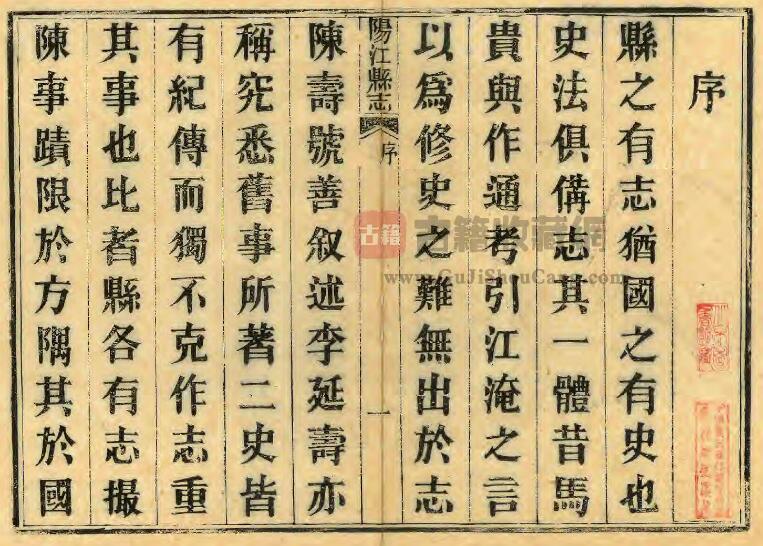 序
縣之有志猶國之有史也
史法俱備志其一體昔馬
貴與作通考引江淹之言
以爲修史之難無出於志
陽江縣志 序 一
陳壽號善叙述李延壽亦
稱究悉舊事所著二史皆
有紀傳而獨不克作志重
其事也比者縣各有志撮
陳事蹟限於方隅其於國
古籍 古籍收藏網
www.GuJiShouCang.com